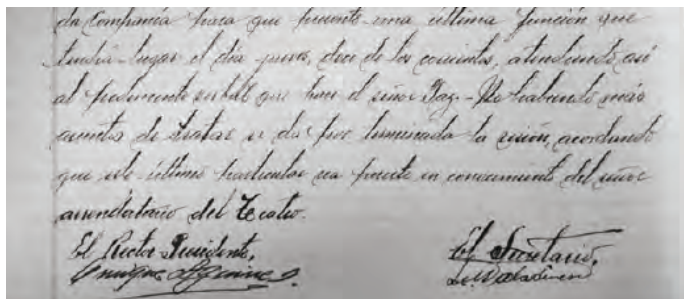 da Compañía para que presente una última función que
tendrá lugar el día jueves, doce de los corrientes, atendiendo así
al pedimento verbal que hace el señor Paz.- No habiendo más
asuntos de tratar se da por terminada la sesión, acordando
que este último particular sea puesto en conocimiento del señor
arrendatario del Teatro.
El Rector Presidente, El Secretario,